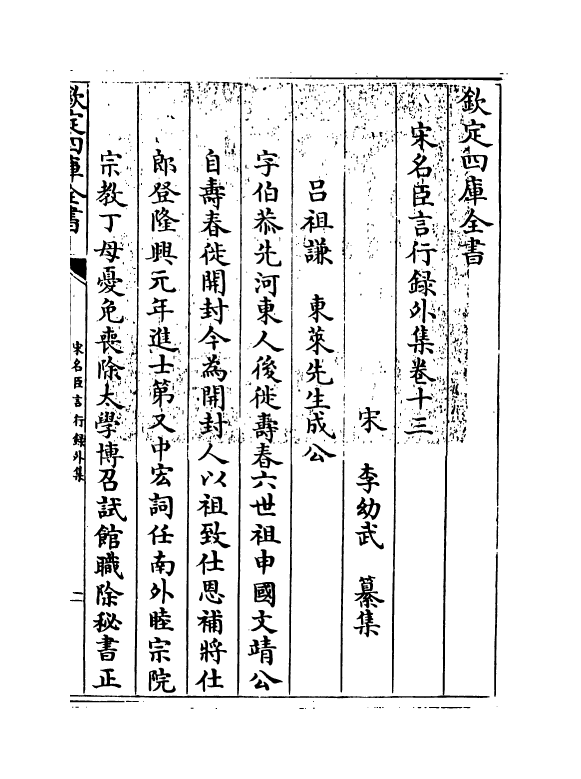 欽定四庫全書
宋名臣言行録外集卷十三
宋 李幼武 纂集
吕祖謙 東萊先生成公
字伯恭先河東人後徙壽春六世祖申國文靖公
自壽春徙開封今為開封人以祖致仕恩補將仕
郎登隆興元年進士第又中宏詞任南外睦宗院
宗教丁母憂免喪除太學博召試館職除秘書正
欽定四庫全書
宋名臣言行録外集